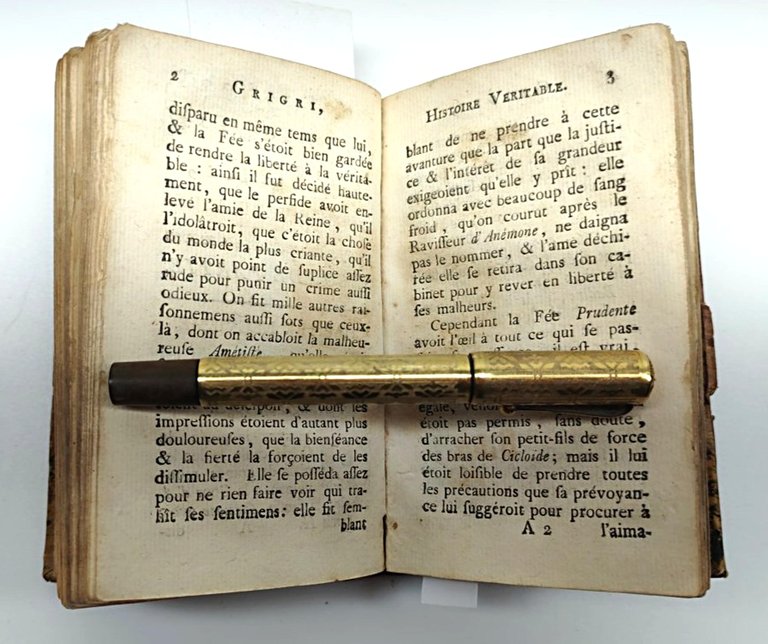 2 GRIGRI,
diſparu en même tems que lui,
& la Fée s'étoit bien gardée
de rendre la liberté à la vérita-
ble : ainſi il fut décidé haute-
ment, que le perfide avoit en-
levé l'amie de la Reine, qu'il
l'idolâtroit, que c'étoit la choſe
du monde la plus criante, qu'il
n'y avoit point de ſuplice aſſez
rude pour punir un crime auſſi
odieux. On fit mille autres rai-
ſonnemens auſſi ſots que ceux-
là, dont on accabloit la malheu-
reuſe Amétiſte
& dont les
impreſſions étoient d'autant plus
douloureuſes, que la bienſéance
& la fierté la forçoient de les
diſſimuler. Elle ſe poſſéda aſſez
pour ne rien faire voir qui tra-
hît ſes ſentimens: elle fit ſem-
blant
HISTOIRE VERITABLE. 3
blant de ne prendre à cette
avanture que la part que la juſti-
ce & l'intérêt de ſa grandeur
exigeoient qu'elle y prît : elle
ordonna avec beaucoup de ſang
froid, qu'on courut après le
Raviſſeur d'Anémone, ne daigna
pas le nommer, & l'ame déchi-
rée elle ſe retira dans ſon ca-
binet pour y rever en liberté à
ſes malheurs.
Cependant la Fée Prudente
avoit l'œil à tout ce qui ſe paſ-
il eſt vrai,
égale,
étoit pas permis, ſans doute,
d'arracher ſon petit-fils de force
des bras de Cicloïde; mais il lui
étoit loiſible de prendre toutes
les précautions que ſa prévoyan-
ce lui ſuggéroit pour procurer à
A 2 l'aima-